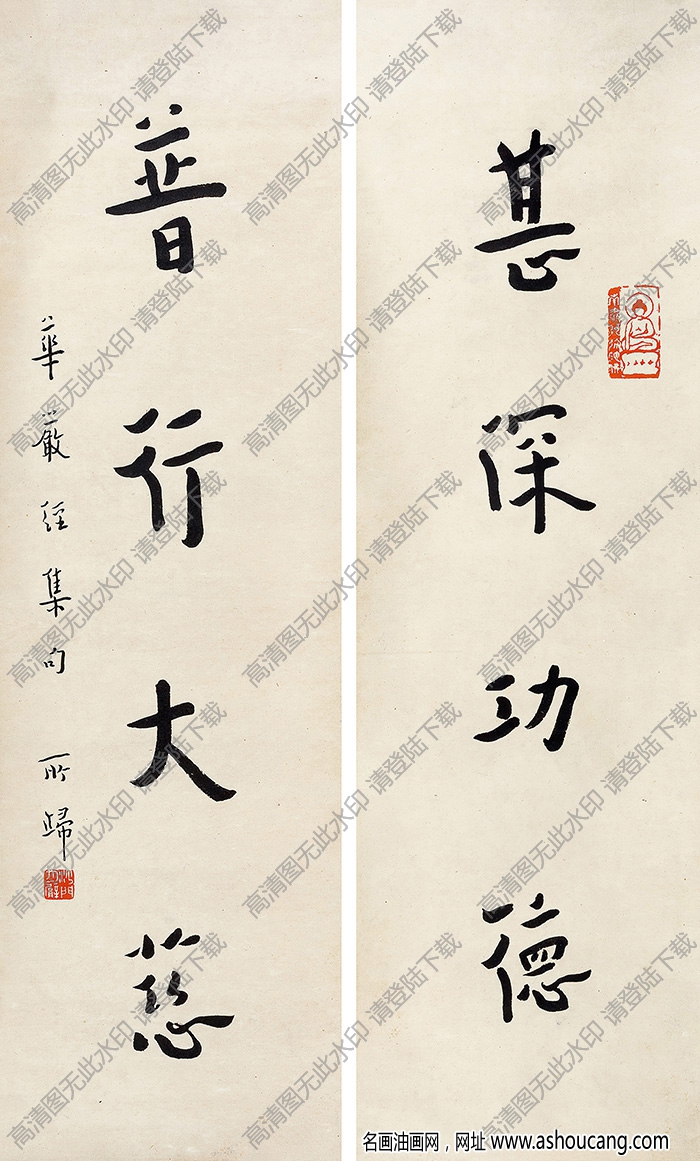 甚深功德
普行大慈
華嚴經集句 所歸
高清图无此水印 请登陆下载
名画油画网，网址 www.ashoucang.com